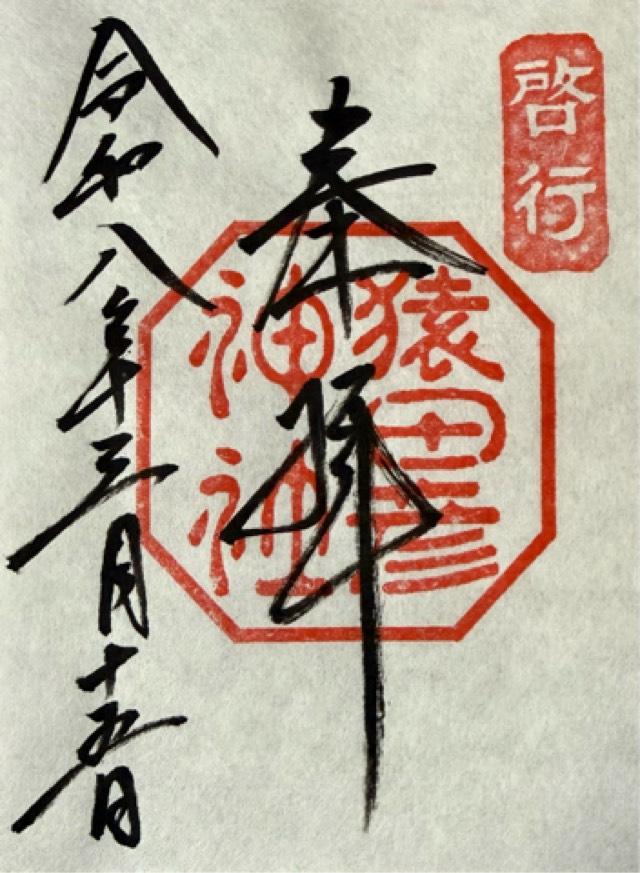 啓行
奉拝
猿田彦
神社
令和八年三月十五日